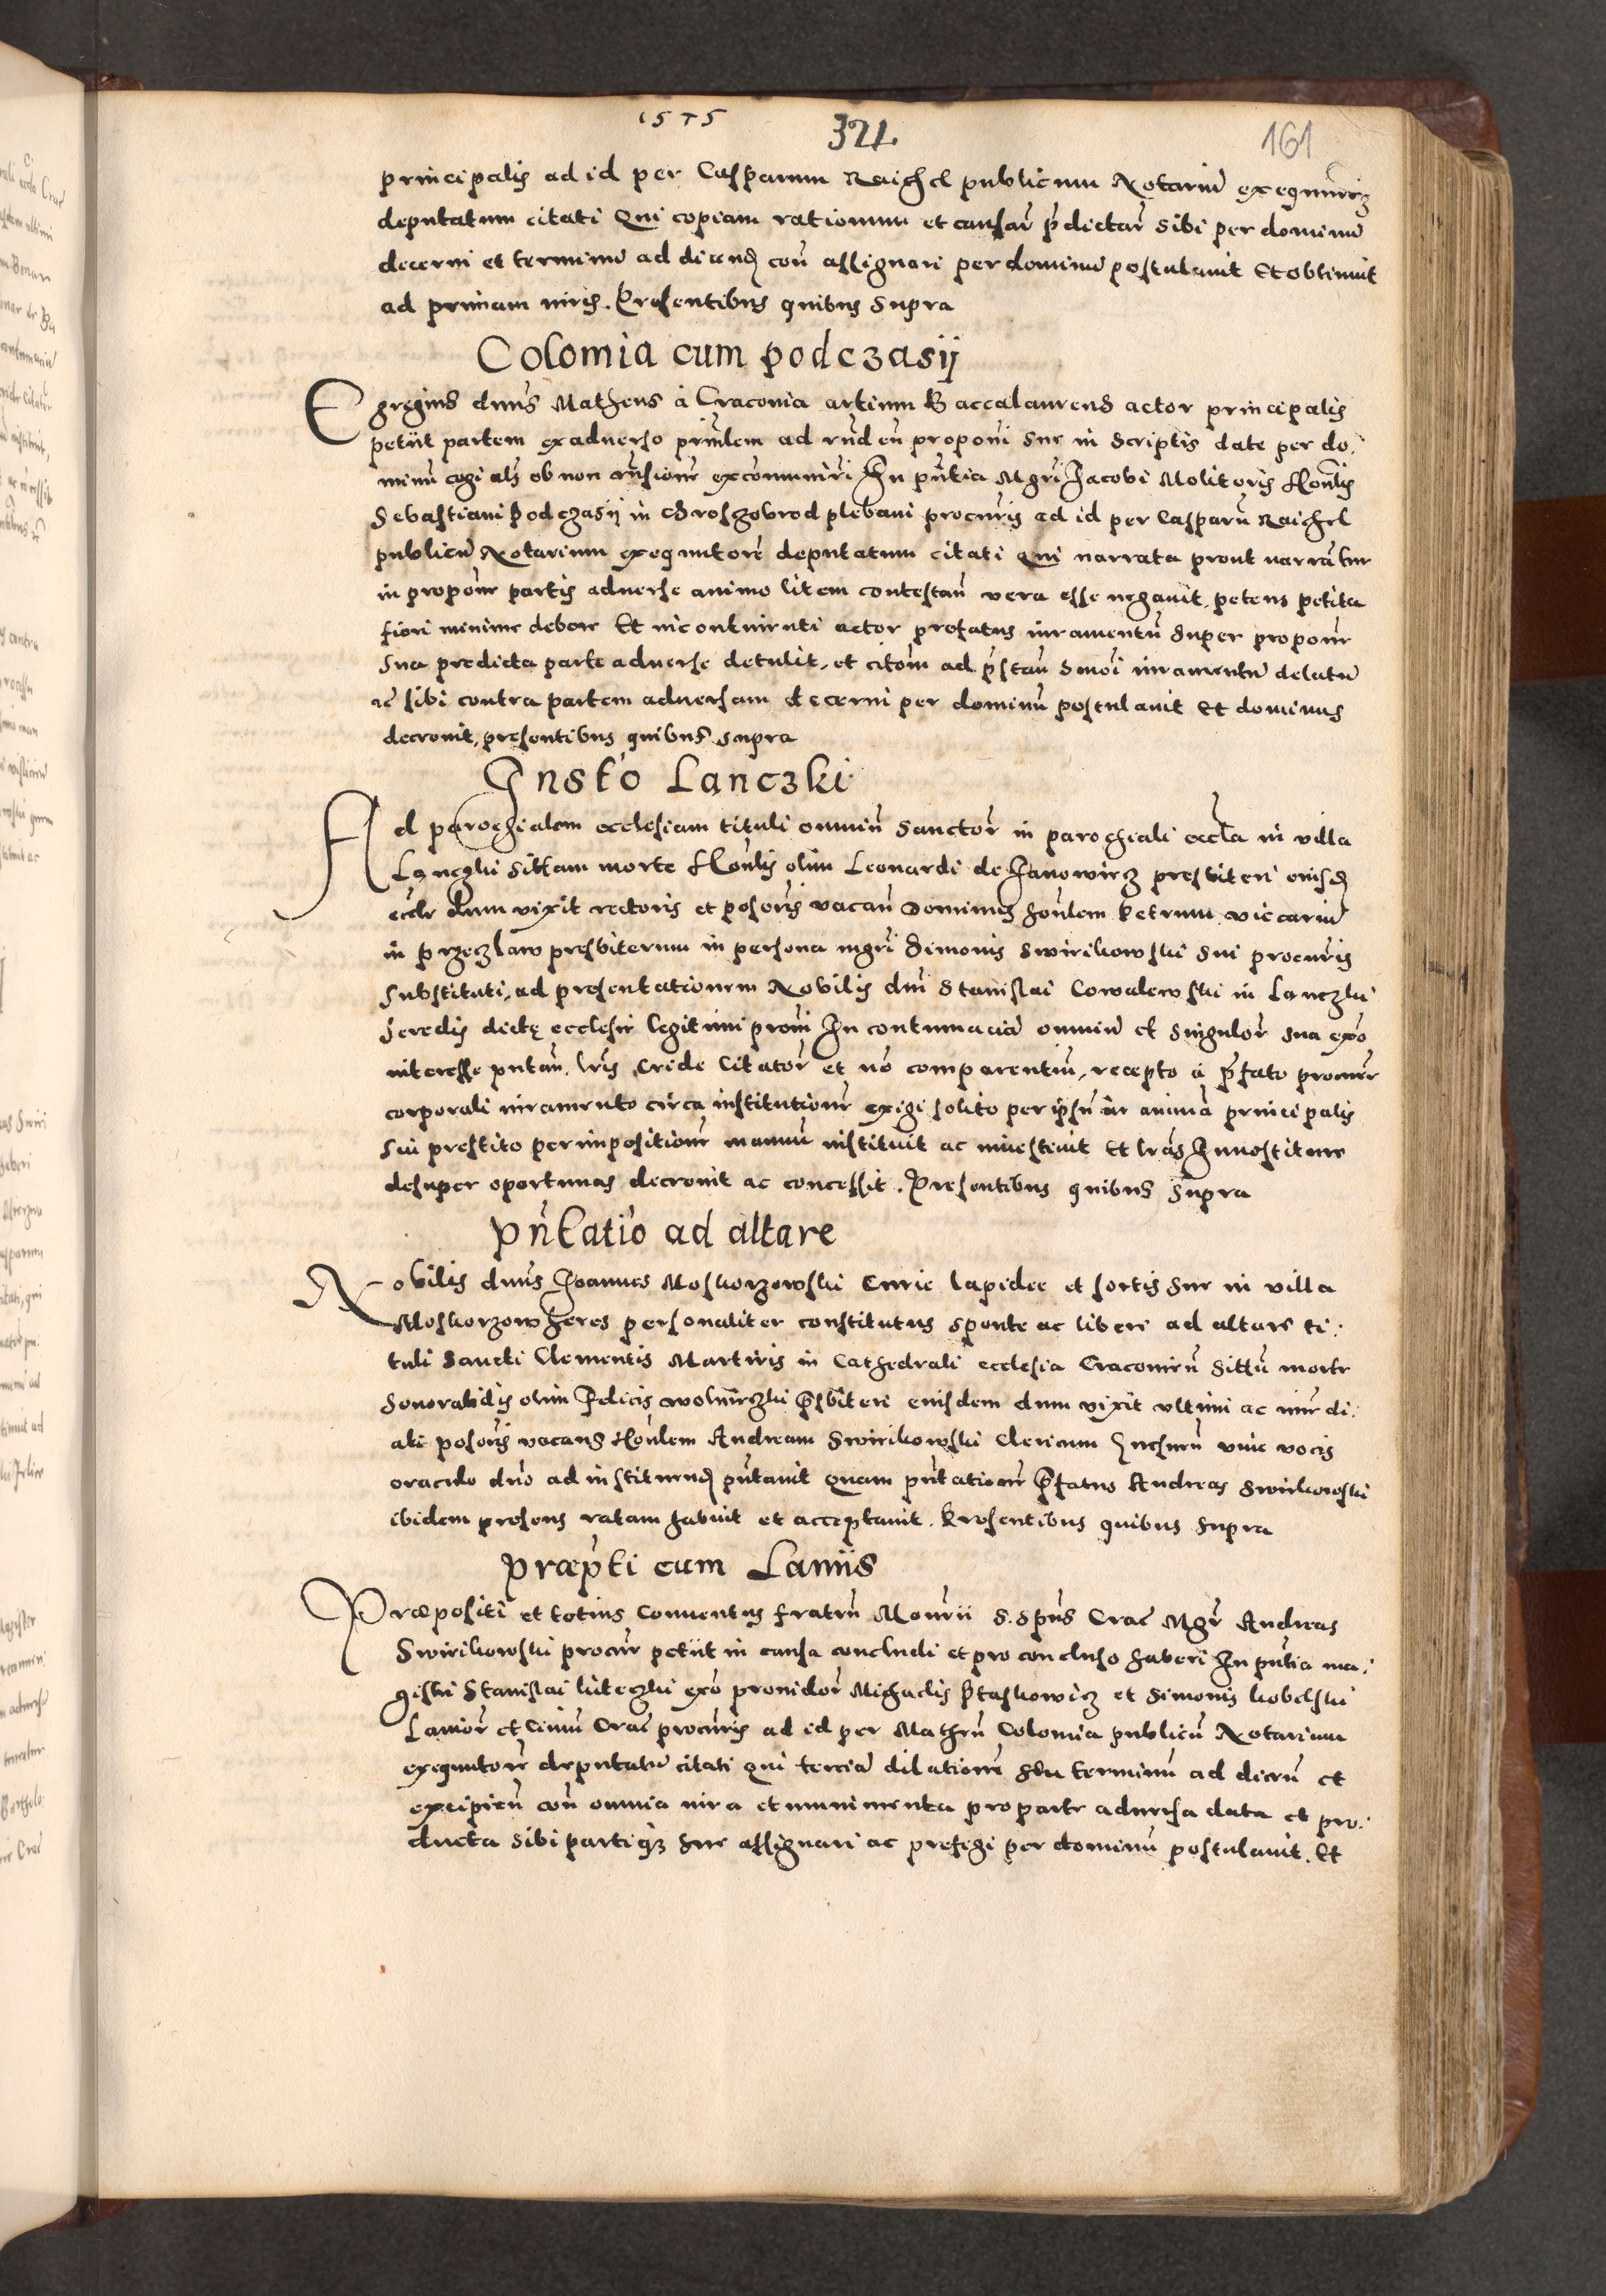 1575
321
161
principalis ad id per Casparum Raichel publicum Notariũ exequutorẽ
deputatum citati Qui copiam rationum et causar̃ p̃dictar̃ sibi per dominũ
decerni et terminũ ad dicend̃ con̄ assignari per dominũ postulavit Et obtinuit
ad primam iuris. Presentibus quibus supra
Colomia cum podczasij
Egregius dnũs Matheus à Cracovia artium Baccalaureus actor principalis
petiit partem ex adverso prin̄lem ad rñden̄ proponi sue in scriptis date per do,
minũ cogi als ob non rñsionẽ excõmuniri In pñtia Mgri Jacobi Molitoris Hon̄lis
Sebastiani Podczasij in Chroszobrod plebani procuris ad id per Casparũ Raichel
publicũ Notarium exequutorẽ deputatum citati Qui narrata prout narrãtur
in propoñe partis adverse animo litem contestan̄ vera esse negavit, petens petita
fieri minime debere Et incontinenti actor prefatus iuramentũ super propoñe
sua predicta parte adverse detulit, et citoñem ad p̃stan̄ smoi iuramentũ delatũ
ac̃ sibi contra partem adversam decerni per dominũ postulavit Et dominus
decrevit, presentibus quibus supra
Insťo Lanczki
Ad parochialem ecclesiam tituli omniũ Sanctor̃ in parochiali eccl̃a in villa
Lanczki sittam morte Hon̄lis olim Leonardi de Janowicz presbiteri eiusd̃
eccl̃e dum vixit rectoris et posõris vacan̄ Dominus hon̄lem Petrum viccariũ
in Przeczlaw presbiterum in persona mgri Simonis Swirikowski sui procuris
substituti, ad presentationem Nobilis dñi Stanislai Cowalewski in Lanczki
heredis dictę ecclesie legitimi pron̄i In contumaciã omniũ et singulor̃ sua exõ
interesse putan̄, lr̃is cride citator̃ et nõ comparentiũ, recepto à p̃fato procurẽ
corporali iuramento circa institutionẽ exigi solito per ipsũ in animã principalis
sui prestito per impositionẽ manuũ instituit ac investivit Et lr̃as Investiture
desuper oportunas decrevit ac concessit. Presentibus quibus supra
Pñtatio ad altare
Nobilis dnũs Joannes Moskorzowski Curie lapidee et sortis sue in villa
Moskorzow heres personaliter constitutus sponte ac libere ad altare ti,
tuli Sancti Clementis Martiris in Cathedrali ecclesia Cracovieñ sittũ morte
honorabilis olim Felicis presbiteri eiusdem dum vixit ultimi ac imẽ di,
ati posõris vacans Hon̄lem Andream Swirikowski Clericum vive vocis
oraculo dño ad instituend̃ pñtavit Quam pñtationẽ p̃fatus Andreas Swirikowski
ibidem presens ratam habuit et acceptavit. Presentibus quibus supra
Præpti cum Laniis
Præpositi et totius Conventus fratrũ Moñrii S. Sp̃us Crac̃ Mgr̃ Andreas
Swirikowski procur̃ petiit in causa concludi et pro concluso haberi In pñtia ma,
gistri Stanislai exõ providor̃ Michaelis Ptaskowicz et Simonis kobelski
Lanior̃ et Civiũ Crac̃ procuris ad id per Matheũ Colomia publicũ Notarium
exequutorẽ deputatũ citati Qui terciã dilationẽ seu terminũ ad dicen̄ et
excipien̄ con̄ omnia iura et munimenta pro parte adversa data et pro,
ducta sibi partiq̃ sue assignari ac prefigi per dominũ postulavit. Et